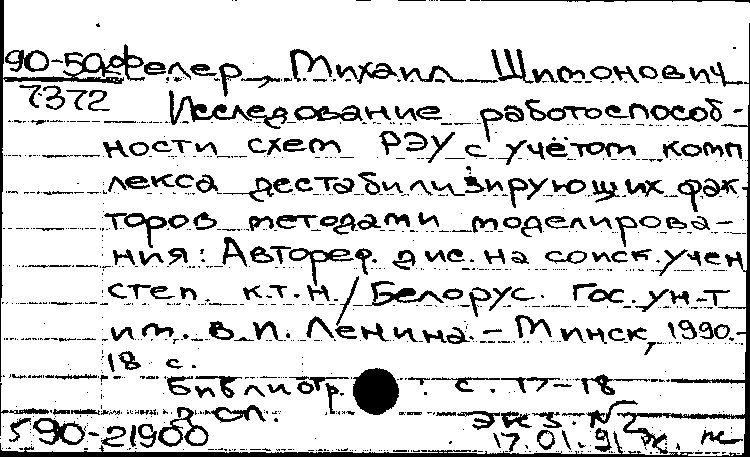 90-50 Фелер, Михаил Шимонович
7372 Исследование работоспособ-
ности схем РЭУ с учётом комп
лекса дестабилизирующих фак-
торов методами моделирова-
ния: Автореф. дис. на соиск. учен
степ. к.т.н. / Белорус. Гос. ун-т
им. В.И. Ленина. - Минск, 1990.-
18 с.
Библиогр. : с. 17-18
Экз. №2
590-21900 17.01.91